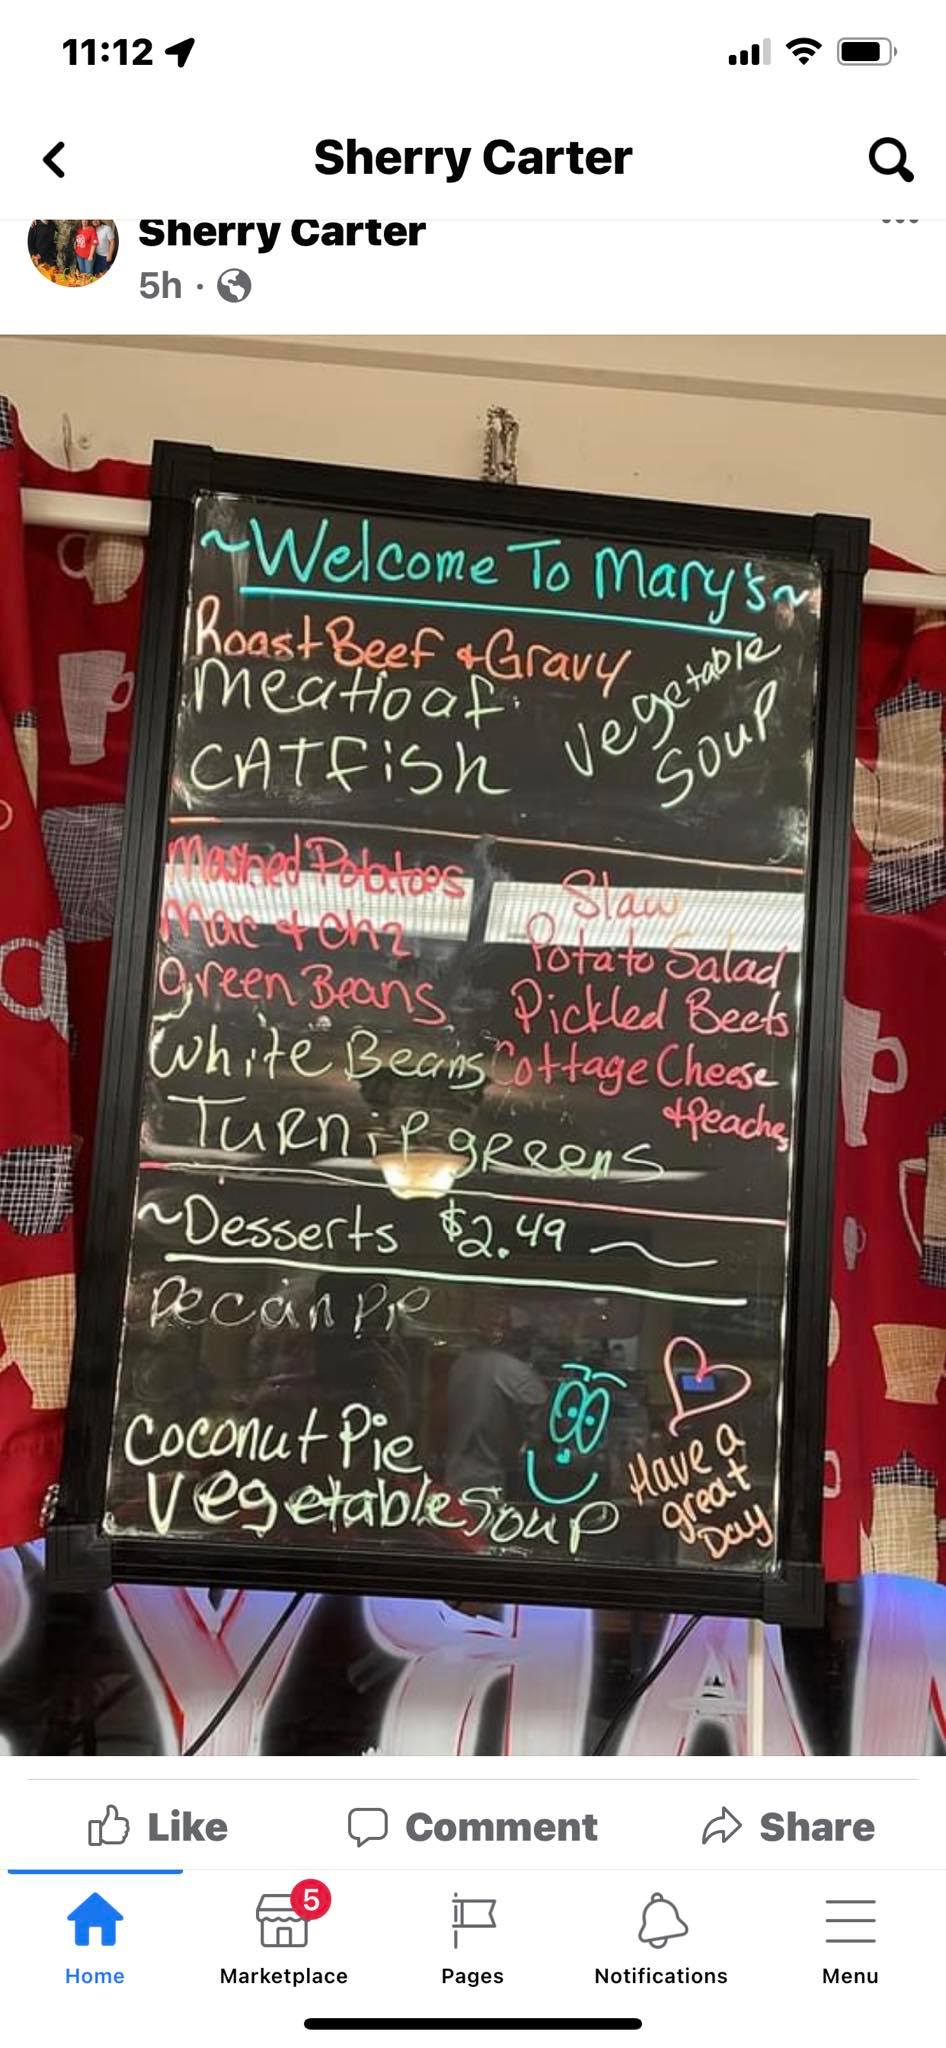 11:12
Sherry Carter
Sherry Carter
5h ·
~Welcome To Mary's~
Roast Beef & Gravy
Meatloaf
CATFisH
Vegetable
Soup
Mashed Potatoes
Mac & Chz
Green Beans
White Beans
TURNiP gReens
Slaw
Potato Salad
Pickled Beets
Cottage Cheese
& Peaches
~Desserts $2.49~
Pecan Pie
Coconut Pie
Vegetable Soup
Have a
great
Day
Like
Comment
Share
5
Home
Marketplace
Pages
Notifications
Menu